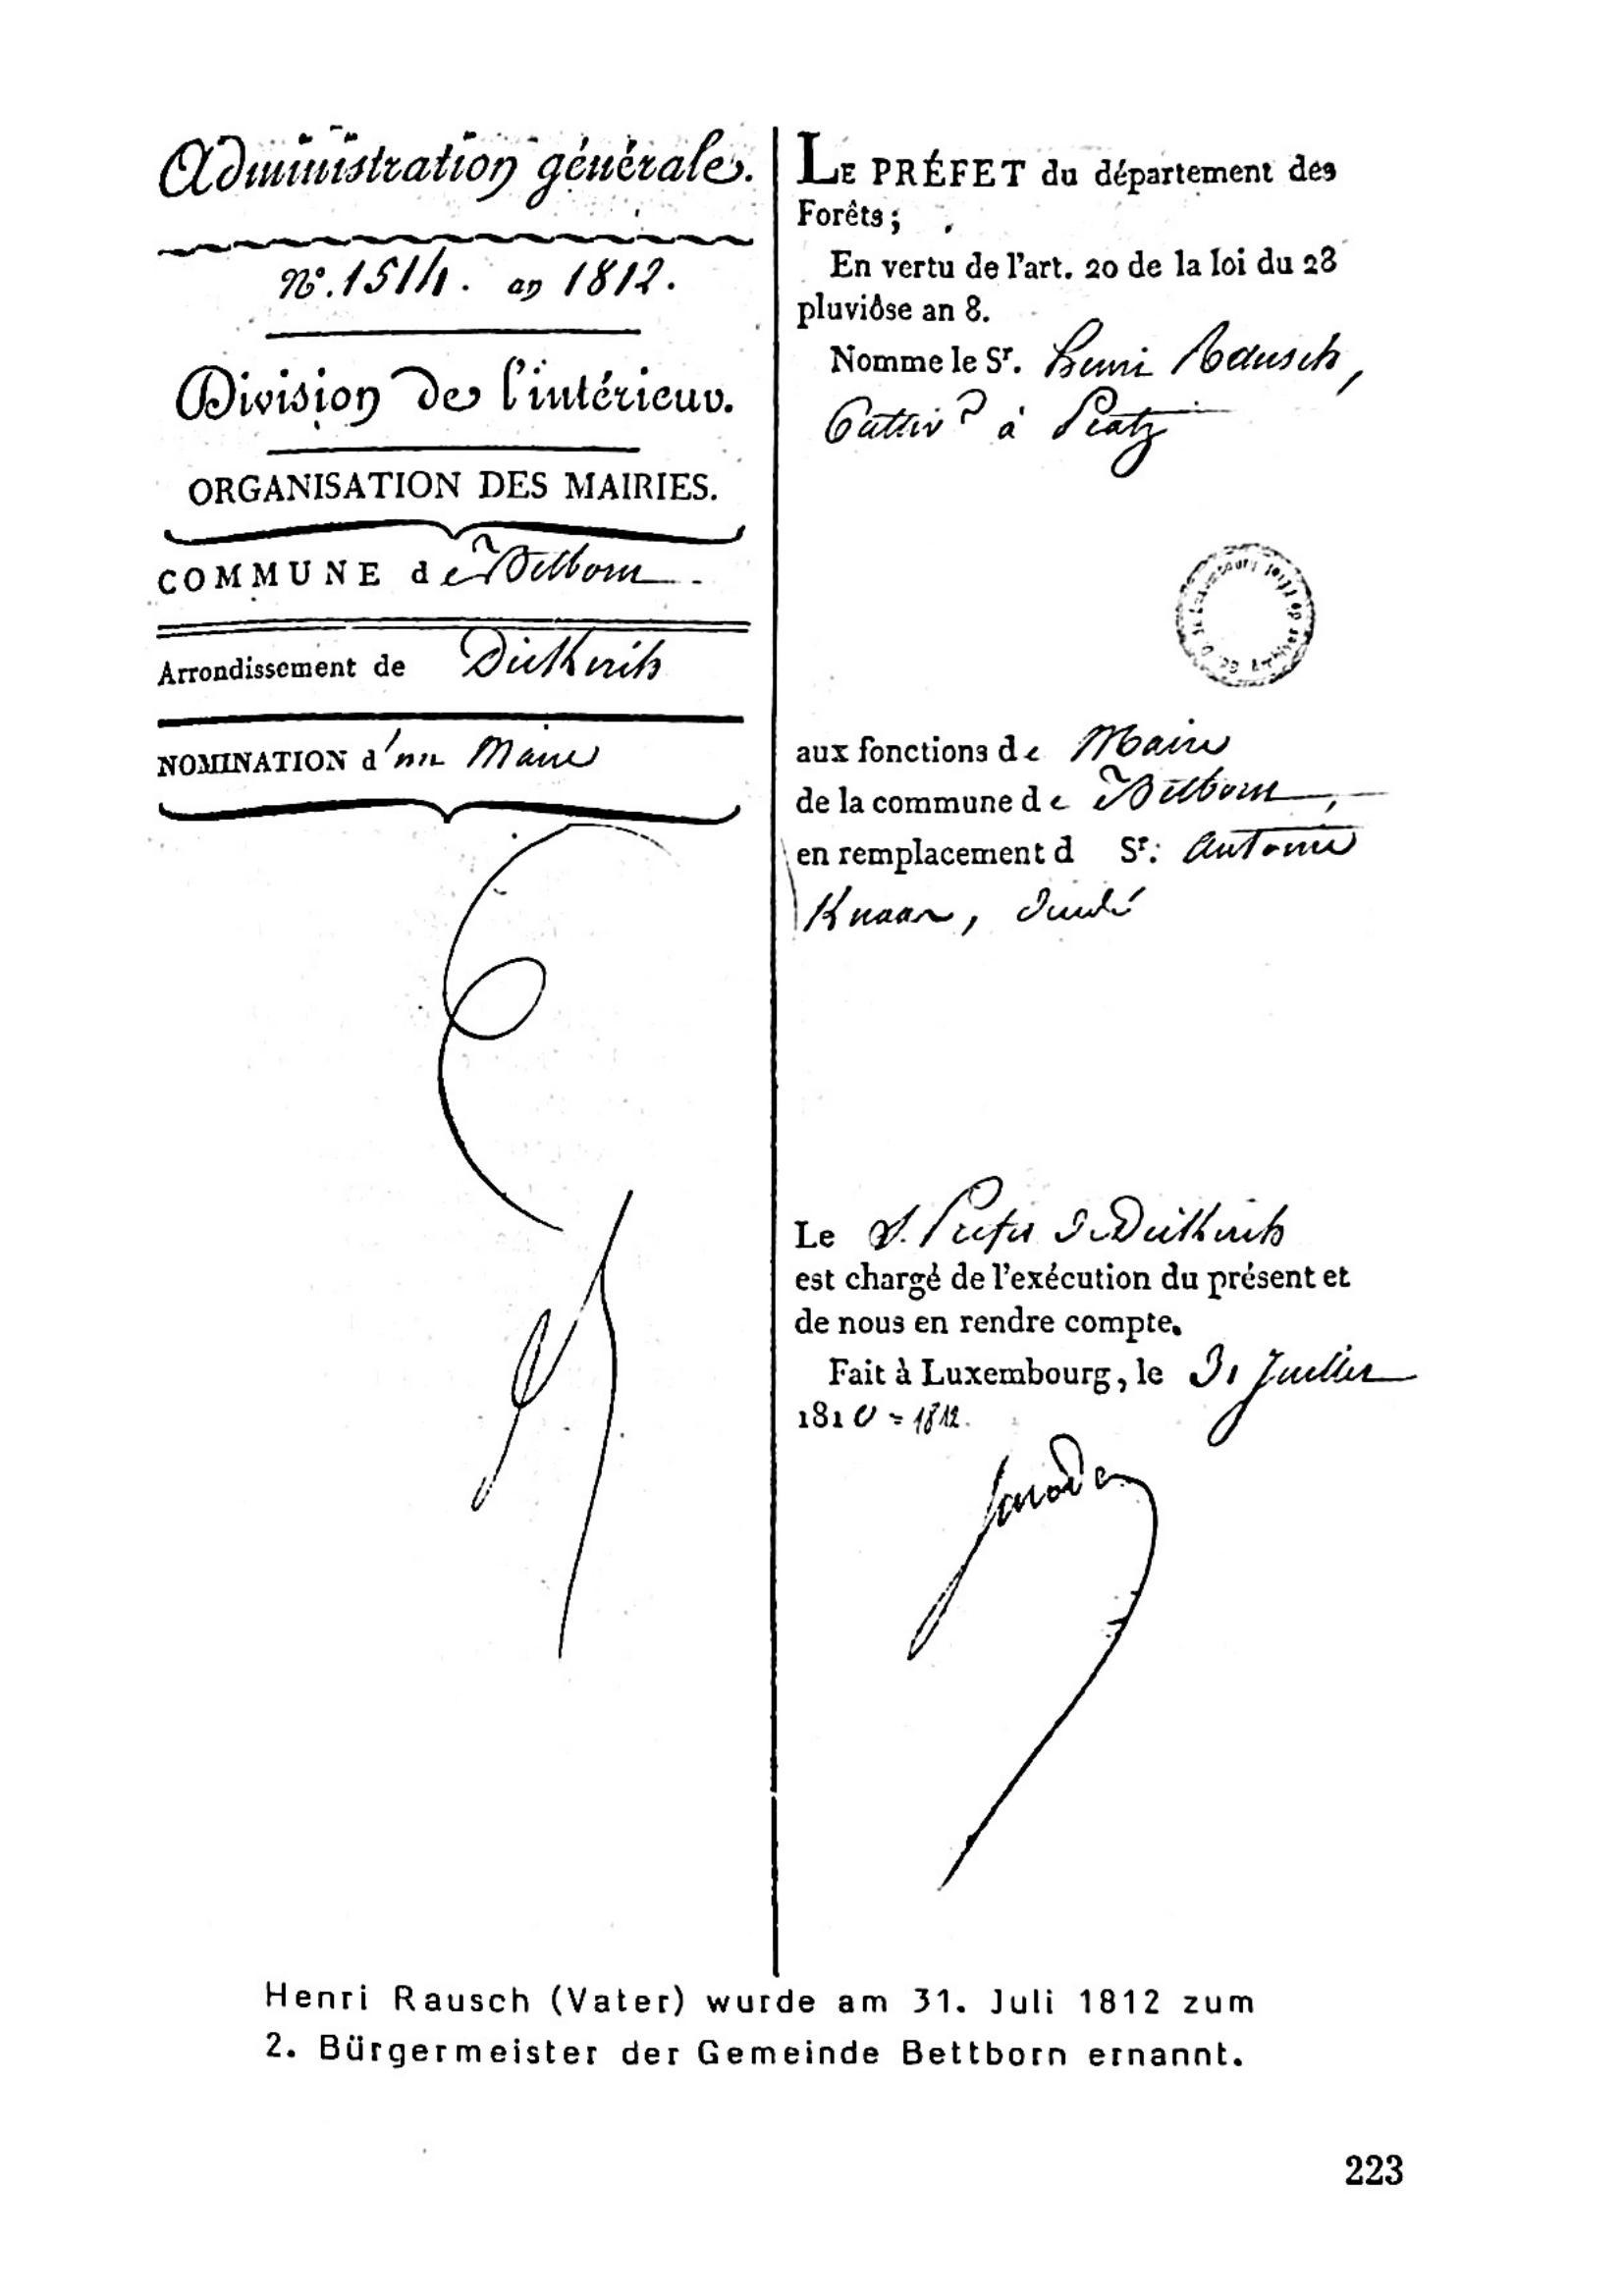 Administration générale.
N°. 1514. an 1812.
Division de l'intérieur.
ORGANISATION DES MAIRIES.
COMMUNE de Betborn
Arrondissement de Diekirch
NOMINATION d'un Maire
LE PRÉFET du département des
Forêts ;
En vertu de l'art. 20 de la loi du 28
pluviôse an 8.
Nomme le Sr. Henri Rausch,
Cultivr à Pratz
aux fonctions de Maire
de la commune de Betborn,
en remplacement d Sr: Antoine
Knaar,
Le S. Prefet de Diekirch
est chargé de l'exécution du présent et
de nous en rendre compte.
Fait à Luxembourg, le 31 Juillet
1810 = 1812.
Henri Rausch (Vater) wurde am 31. Juli 1812 zum
2. Bürgermeister der Gemeinde Bettborn ernannt.
223